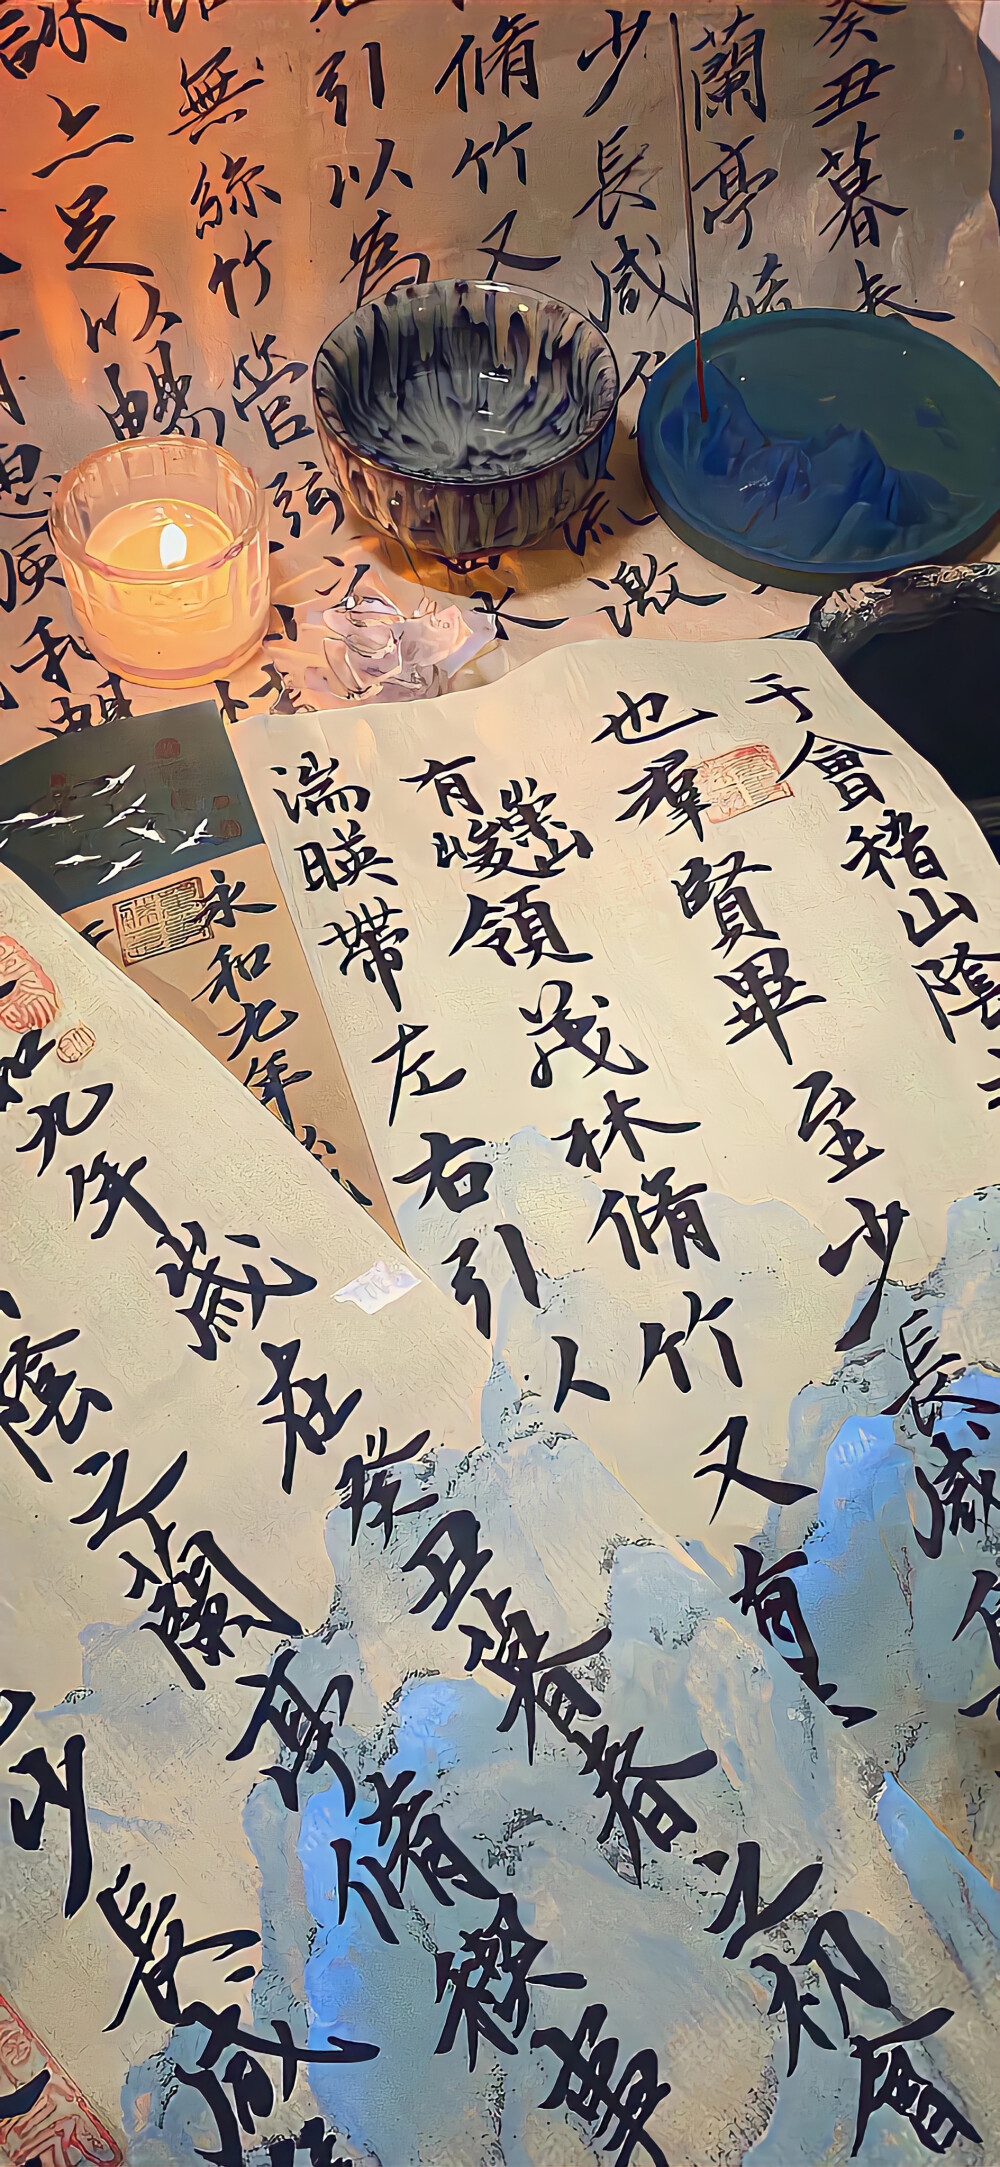 癸丑暮春
蘭亭脩
少長咸
流激
脩竹又
引以為
無絲竹管弦之
詠
上足以暢
惠風和暢
于會稽山陰
也羣賢畢至少長咸
有崇山
峻領茂林脩竹又有
湍暎帶左右引人
永和九年
和九年歲在癸丑暮春之初會
陰之蘭亭脩禊事
少長咸